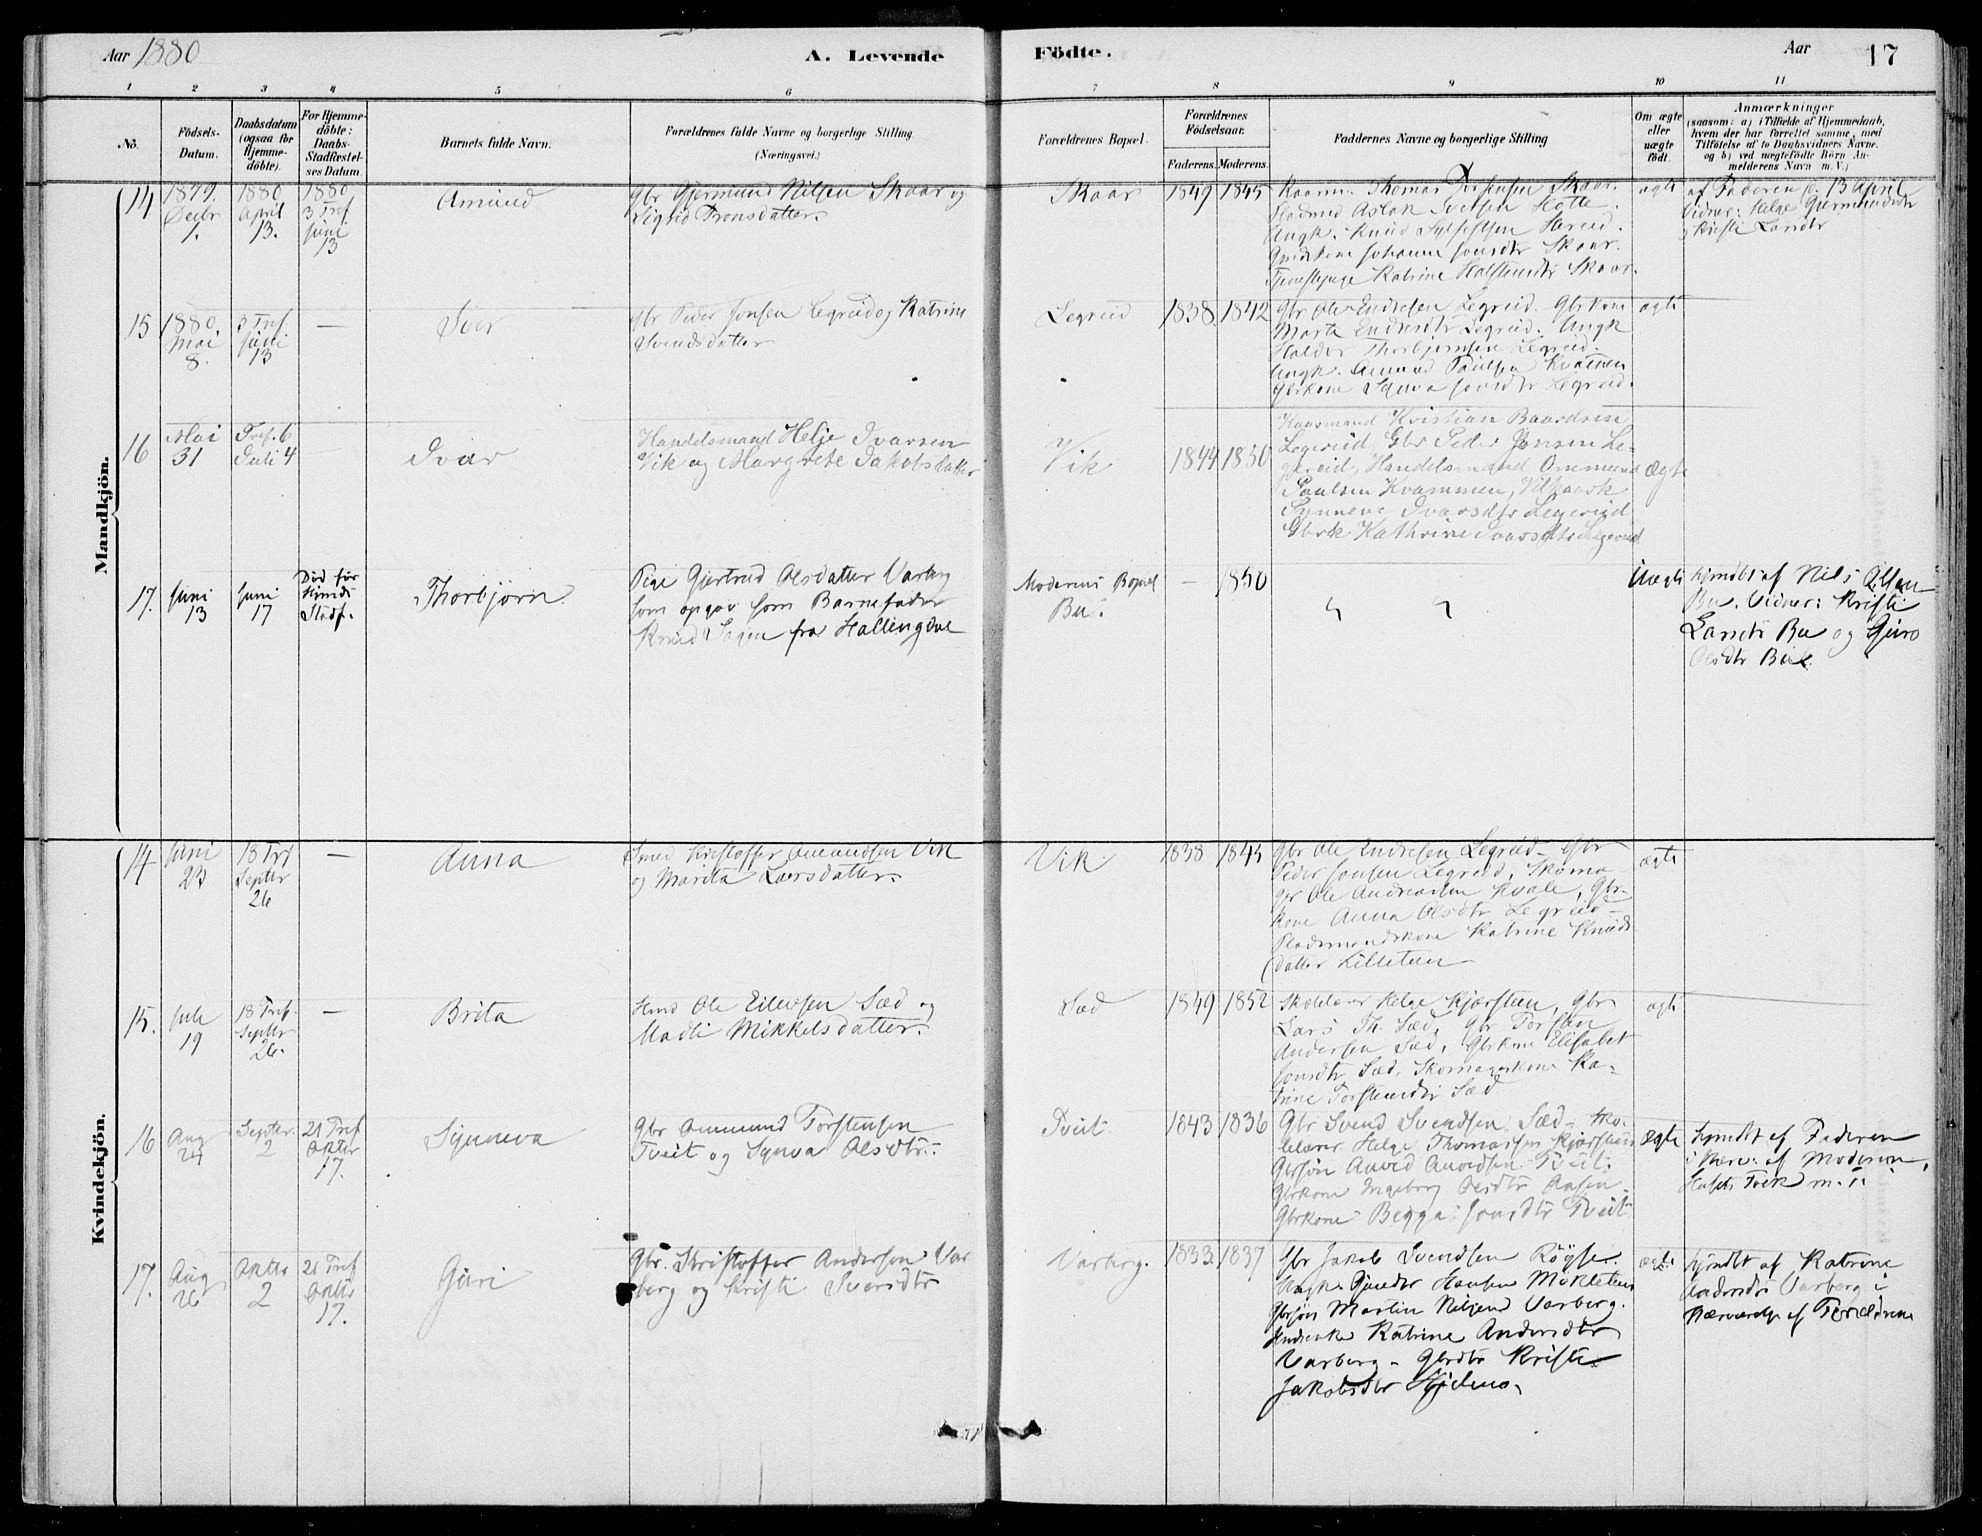 Aar 1880
A. Levende
Födte.
Aar
17
1 2 3 4 5 6 7 8 9 10 11
No.
Födsels-Datum.
Daabsdatum (ogsaa för Hjemme-döbte).
For Hjemme-döbte: Daabs-Stadfæstel-ses Datum.
Barnets fulde Navn.
Forældrenes fulde Navne og borgerlige Stilling (Næringsvei.)
Forældrenes Bopæl.
Forældrenes Födselsaar.
Faderens. Moderens.
Faddernes Navne og borgerlige Stilling
Om ægte eller uægte födt.
Anmærkninger
(saasom: a) i Tilfælde af Hjemmedaab,
hvem der har forrettet samme, med
Tilföielse af to Daabsvidners Navne.
og b) ved uægtefödte Börn An-
melderens Navn m.V.)
Mandkjön.
14
1879.
Decbr
1.
1880
April
13.
1880
3 Tref
Juni
13
Amund
Gbr Gjermund Nilsen Skaar og
Sigrid Tronsdatter.
Skaar
1849 1845
Thomas Torstensen Skaar.
Aslak Svensen Hotte.
Ungk. Knud Hereid.
Johanna Jonsdtr Skaar.
Tjenestepige Katrine Halstensdtr Skaar.
ægte
af Faderen d. 13 April
Vidner: Helge Gjermundsdtr
Kristi Larsdtr
15
1880.
Mai
8.
3 Tref.
Juni
13
—
Iver
Gbr Peder Jonsen Legreid og Katrine
Svendsdatter
Legreid
1838. 1842
Gbr Ole Endresen Legreid. Gbrkone
Marta Endresdtr Legreid. Ungk
Haldor Thorbjørnsen Legreid.
Ungk. Amund Paulsen Kvammen
Gbrkone Synva Jonsdtr Legreid.
ægte
16
Mai
31
Tref. 6
Juli 4
—
Ivar
Handelsmand Helje Ivarsen
Vik og Margrete Jakobsdatter
Vik
1844 1850
Kaarmand Kristian Baardsen
Legereid, Gbr Peder Jonsen Le-
gereid, Handelsmand Ommund
Paulsen Kvammen,
Synneve Ivarsdtr Legereid
Gbrk Kathrine Ivarsdtr Legereid
Ægte
17.
Juni
13
Juni
17
Död før
Hjmds
Stadf.
Thorbjørn.
Pige Gjertrud Olsdatter Varberg
som opgav som Barnefader
Knud Sagen fra Hallingdal
Moderens Bopæl
Bu.
—
1850
Uægte
hjmdbt af Nils Olsen
Bu. Vidner: Kristi
Larsdtr Bu og Guro
Olsdtr Bu.
Kvindekjön.
14
Juni
23
18 Trf
Septbr
26
—
Anna
Smed Kristoffer Amundsen Vik
og Marita Larsdatter.
Vik
1838 1845
Gbr Ole Endresen Legreid. Gbr
Peder Jonsen Legreid, Skoma
ger Ole Andreassen Kvale, Gbr-
kone Anna Olsdtr Legreid
Pladsmandskone Katrine Knuds
datter Lilletun
ægte
15.
Juli
19
18 Tref.
Septbr
26.
—
Brita
Ole Eilevsen Sæd og
Madli Mikkelsdatter.
Sæd
1849 1852
Skolelærer Helge Kjærsteen, Gbr
Lars Th. Sæd, Gbr Torsten
Andersen Sæd, Gbrkone Elisabet
Jonsdtr Sæd, Skomagerkone Ka-
trine Torstensdtr Sæd
ægte
16
Aug
24
Septbr.
2
21 Tref
Oktbr
17.
Synneva
Gbr Ommund Torstensen
Tveit og Synva Olsdtr.
Tveit
1843 1836
Gbr Svend Svendsen Sæd. Sko-
lelærer Helge Thomassen Kjærsteen
Gbrsøn Anvid Anvidsen Tveit.
Gbrkone Ingeborg Olsdtr Aasen.
Gbrkone Begga Jonsdtr Tveit
Ægte
hjmdbt af Faderen
i Nærv. af Moderen,
Husets Folk
17.
Aug
26
Oktbr
2
21 Tref
Oktbr
17.
Guri
Gbr. Kristoffer Andersen Var
berg og Kristi Iversdtr
Varberg.
1833. 1837
Gbr Jakob Svendsen Røyse.
Ungk. Gunder Hansen Mikletun
Gbrsøn Martin Varberg.
Katrine Andersdtr
Varberg. Gbrdtr Kristi
Jakobsdtr
ægte
hjmdbt af Katrine
Andersdtr Varberg i
Nærværelse af Forældrene